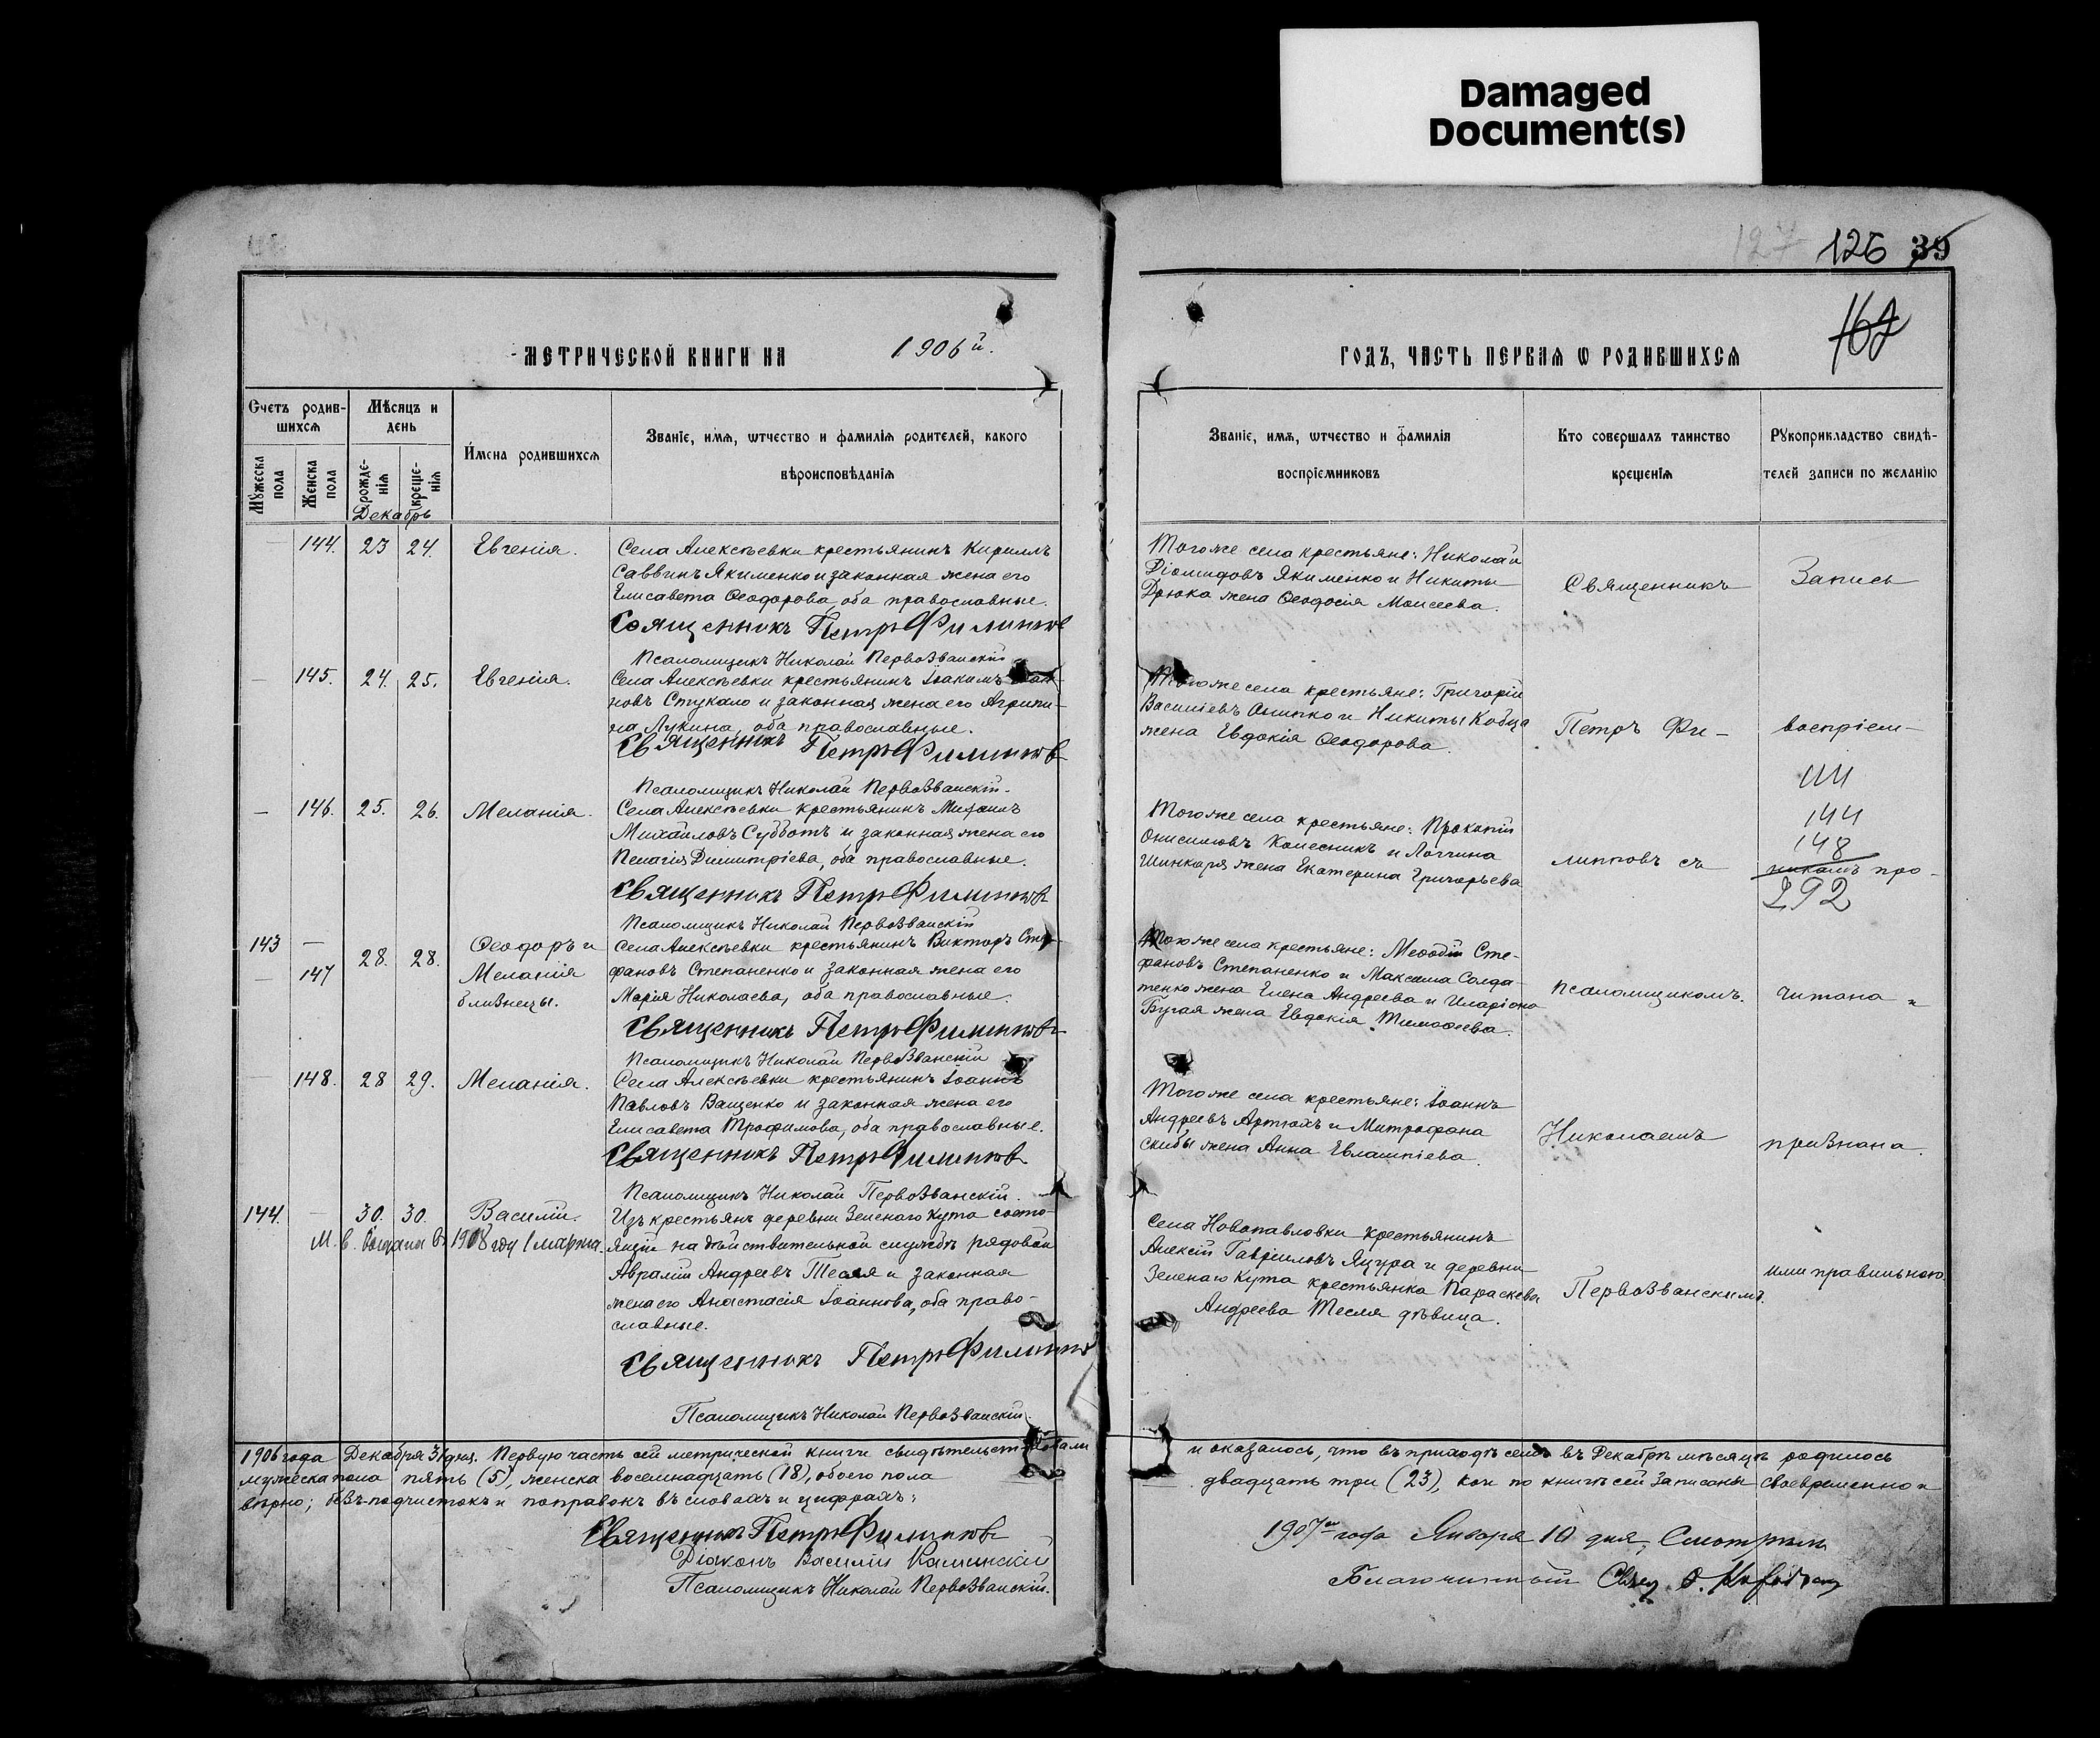 Damaged
Document(s)
126 39
127
162
МЕТРИЧЕСКОЙ КНИГИ НА 1906й.
ГОДЪ, ЧАСТЬ ПЕРВАЯ Ѡ РОДИВШИХСЯ
Счетъ родив-
шихся
Мѣсяцъ и
день
Мꙋжеска
пола
Женска
пола
рожде-
нія
креще-
нія
Имена родившихся
Званіе, имя, ѡтчество и фамилія родителей, какого
вѣроисповѣданія
Званіе, имя, ѡтчество и фамилія
воспріемниковъ
Кто совершалъ таинство
крещенія
Рꙋкоприкладство свидѣ-
телей записи по желанію
Декабрь
— 144. 23 24. Евгенія.
Села Алексѣевки крестьянинъ Кириллъ
Саввинъ Якименко и законная жена его
Елисавета Ѳеодорова, оба православные.
Священникъ Петръ Филиппов
Псаломщикъ Николай Первозванскій
Тогоже села крестьяне: Николай
Діомидовъ Якименко и Никиты
Дрюка жена Ѳеодосія Моисеева.
Священникъ
Запись
— 145. 24. 25. Евгенія.
Села Алексѣевки крестьянинъ Іоакимъ Іоан-
новъ Стукало и законная жена его Агрипи-
на Лукина, оба православные.
Священникъ Петръ Филиппов
Псаломщикъ Николай Первозванскій.
Тогоже села крестьяне: Григорій
Василіевъ Осипко и Никиты Кобца
жена Евдокія Ѳеодорова.
Петръ Фи-
воспріем-
144
148
— 146. 25. 26. Меланія.
Села Алексѣевки крестьянинъ Михаилъ
Михайловъ Субботъ и законная жена его
Пелагія Димитріева, оба православные.
Священникъ Петръ Филиппов
Псаломщикъ Николай Первозванскій
Тогоже села крестьяне: Прокопій
Онисимовъ Колесникъ и Логгина
Шинкаря жена Екатерина Григорьева
липповъ съ
никомъ про-
292
143 —
— 147
28. 28.
Ѳеодоръ и
Меланія
близнецы.
Села Алексѣевки крестьянинъ Викторъ Сте-
фановъ Степаненко и законная жена его
Марія Николаева, оба православные.
Священникъ Петръ Филиппов
Псаломщикъ Николай Первозванскій
Тогоже села крестьяне: Меѳодій Сте-
фановъ Степаненко и Максима Солда-
тенко жена Елена Андреева и Иларіона
Бугая жена Евдокія Тимоѳеева.
псаломщикомъ.
читана и
148. 28 29. Меланія.
Села Алексѣевки крестьянинъ Іоаннъ
Павловъ Ващенко и законная жена его
Елисавета Трофимова, оба православные.
Священникъ Петръ Филиппов
Псаломщикъ Николай Первозванскій.
Тогоже села крестьяне: Іоаннъ
Андреевъ Артюхъ и Митрофана
Скибы жена Анна Евлампіева.
Николаемъ
признана.
144. — 30. 30. Василій.
М. в. выдана въ 1908 году 1 марта.
Изъ крестьянъ деревни Зеленаго Кута состо-
ящій на дѣйствительной службѣ рядовой
Аврамій Андреевъ Тесля и законная
жена его Анастасія Іоаннова, оба право-
славные.
Священникъ Петръ Филиппов
Псаломщикъ Николай Первозванскій.
Села Новопавловки крестьянинъ
Алексій Гавриловъ Яцура и деревни
Зеленаго Кута крестьянка Параскева
Андреева Тесля дѣвица.
Первозванскимъ.
ими правильною.
1906 года Декабря 31 дня. Первую часть сей метрической книги свидѣтельствовали и оказалось, что въ приходѣ семъ въ Декабрѣ мѣсяцѣ родилось
мужеска пола пять (5), женска восемнадцать (18), обоего пола двадцать три (23), кои по книгѣ сей записаны своевременно и
вѣрно; безъ подчистокъ и поправокъ въ словахъ и цифрахъ:
Священникъ Петръ Филиппов
Діаконъ Василій Калинскій
Псаломщикъ Николай Первозванскій.
1907го года Января 10 дня, Смотрѣлъ
Благочинный Свящ.